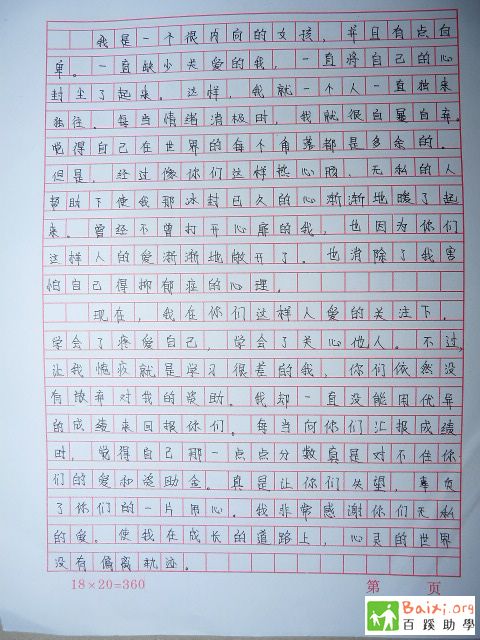 我是一个很内向的女孩，并且有点自
卑。一直缺少关爱的我，一直将自己的心
封尘了起来。这样，我就一个人一直独来
独往。每当情绪消极时，我就很自暴自弃。
觉得自己在世界的每个角落都是多余的。
但是，经过像你们这样热心肠，无私的人
帮助下使我那冰封已久的心渐渐地暖了起
来。曾经不曾打开心扉的我，也因为你们
这样人的爱渐渐地敞开了。也消除了我害
怕自己得抑郁症的心理。
现在，我在你们这样人爱的关注下，
学会了疼爱自己，学会了关心他人。不过，
让我愧疚就是学习很差的我，你们依然没
有放弃对我的资助。我却一直没能用优异
的成绩来回报你们。每当向你们汇报成绩
时，觉得自己那一点点分数真是对不住你
们的爱和资助金。真是让你们失望，辜负
了你们的一片用心。我非常感谢你们无私
的爱。使我在成长的道路上，心灵的世界
没有偏离轨迹。
18×20=360 第 页
Baixi.org
百蹊助學